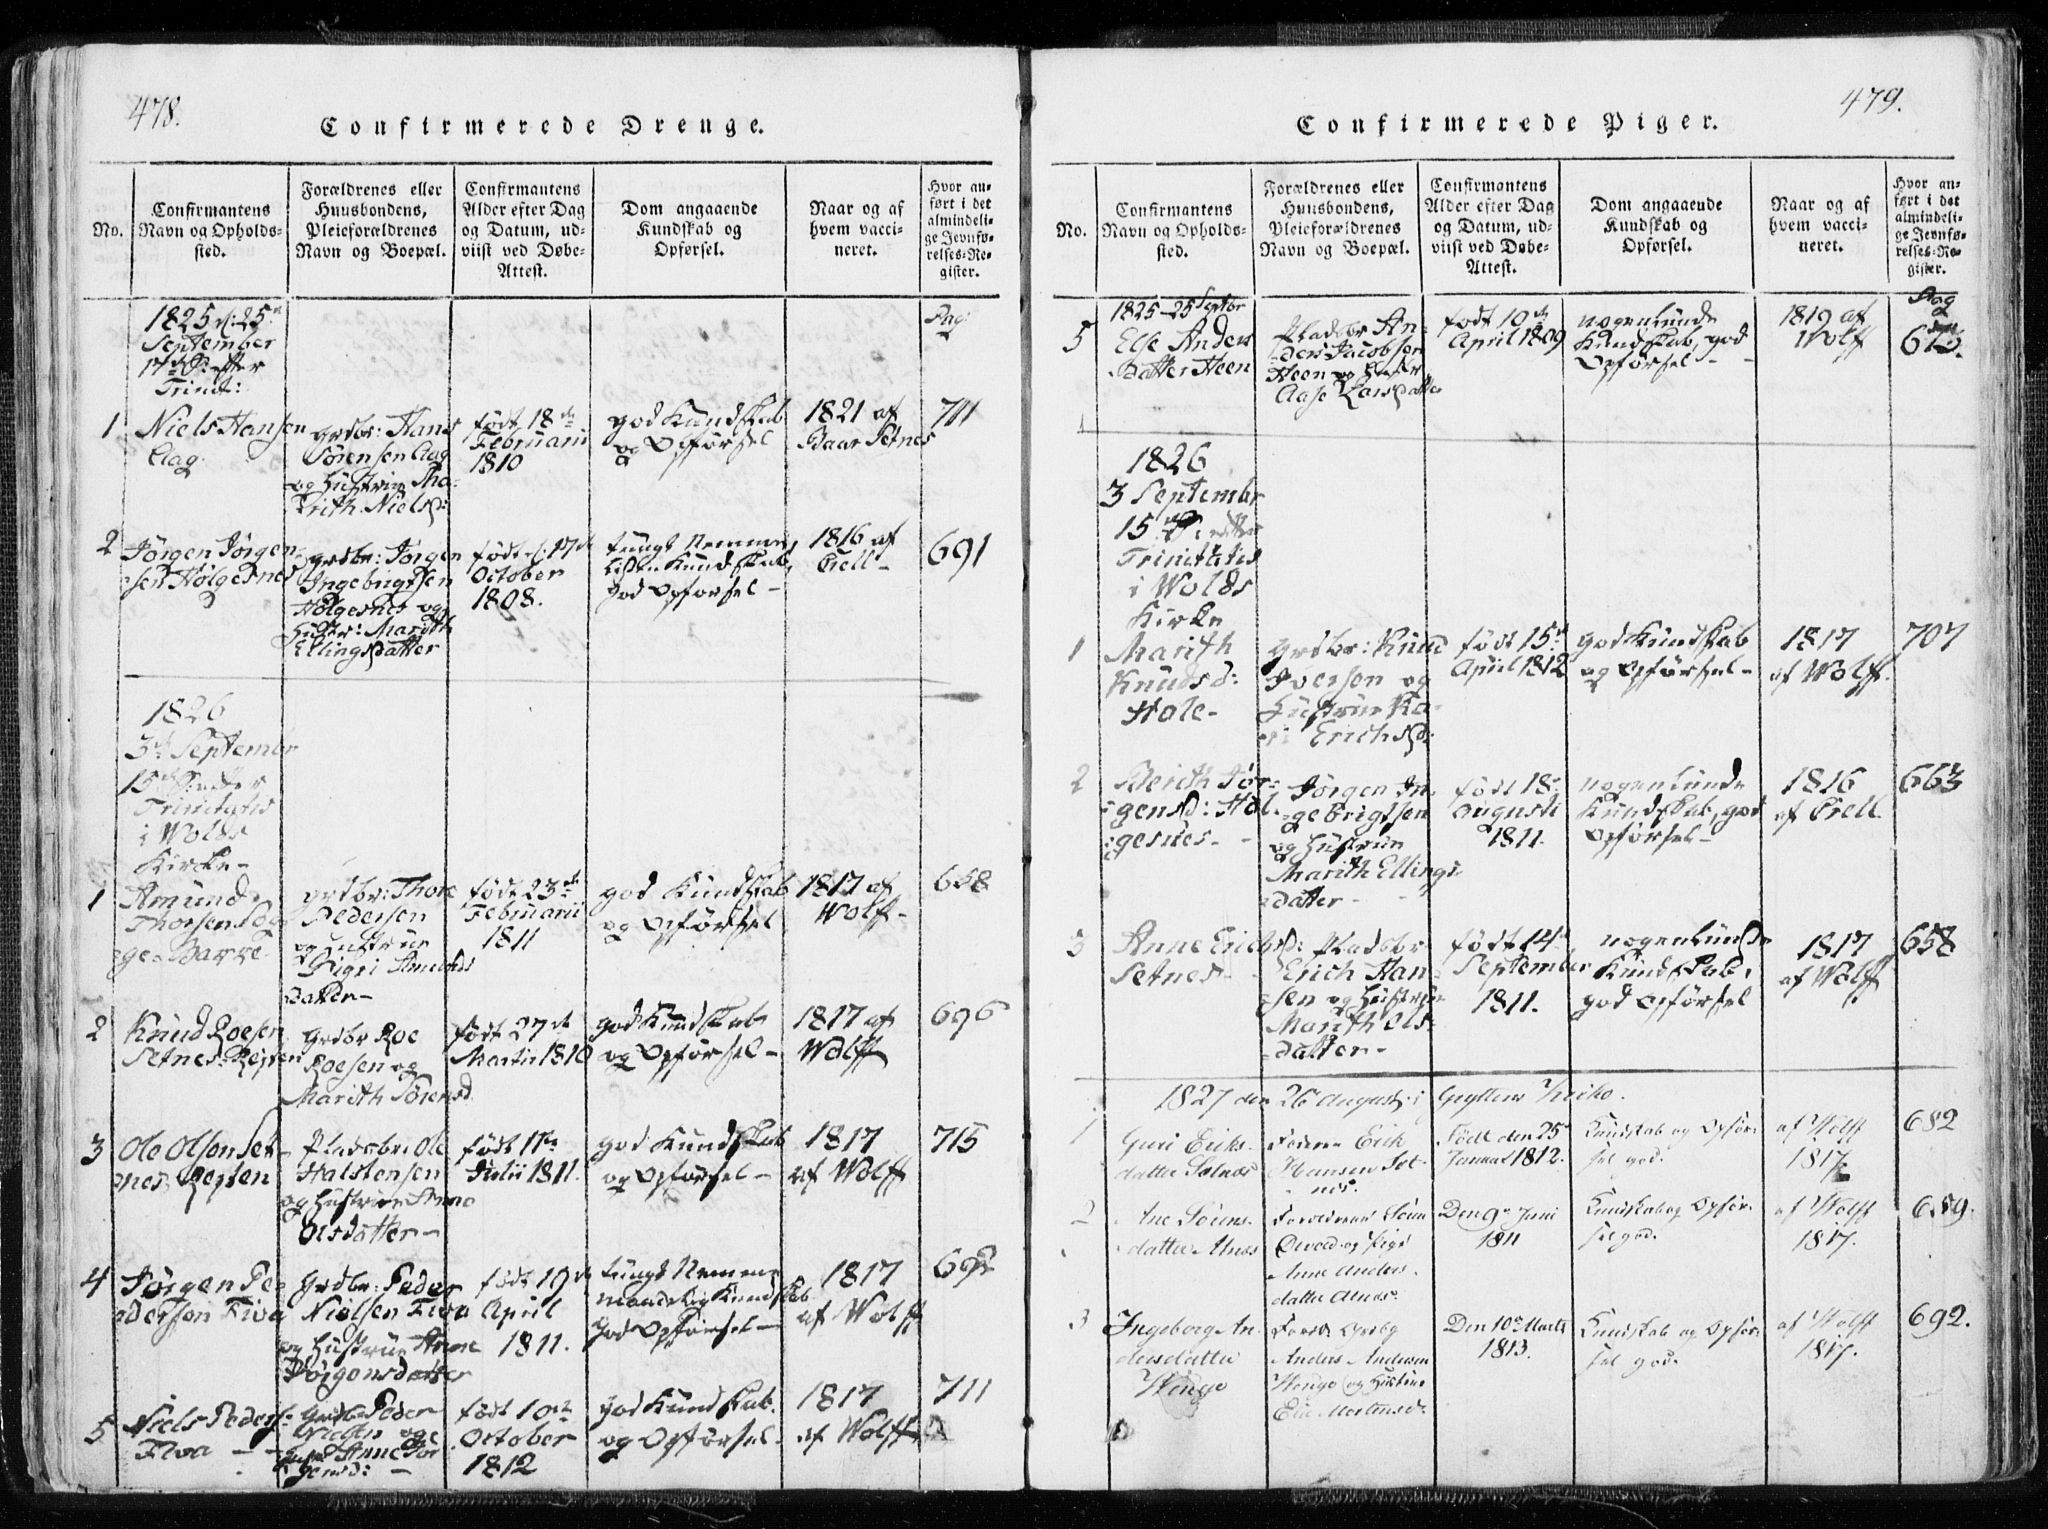 478.
Confirmerede Drenge.
No.
Confirmantens
Navn og Opholds-
sted.
Forældrenes eller
Huusbondens,
Pleieforældrenes
Navn og Boepæl.
Confirmantens
Alder efter Dag
og Datum, ud-
viist ved Døbe-
Attest.
Dom angaaende
Kundskab og
Opførsel.
Naar og af
hvem vacci-
neret.
Hvor an-
ført i det
almindeli-
ge Jevnfø-
relses-Re-
gister.
1825 d: 25
September
17 S: efter
Trinit:
Pag:
1
Niels Hansen
Aag
Grdbr: Hans
Sørensen Aag
og Hustrue Ma-
rith Nielsd:
født 18de
Februarii
1810
god Kundskab
og Opførsel
1821 af
Baar Setnes
711
2
Jørgen Jørgen-
sen Holgesnes
Grdbr: Jørgen
Ingebrigtsen
Holgesnes og
Hustr: Marith
Ellingsdatter
født d: 17de
October
1808.
tungt Nemme,
liden Kundskab,
god Opførsel -
1816 af
Crell -
691
1826
3de September
15de S: efter
Trinitatis
i Wolds
Kirke -
1
Amund
Thorsen Bøg-
ge-Barre-
Grdbr: Thore
Pedersen
og Hustrue
Sigri Amunds
datter -
født 23de
Februarii
1811
god Kundskab
og Opførsel
1817 af
Wolff -
658
2
Knud Roesen
Setnes-Reiten
Grdbr Roe
Roesen og
Marith Sørensd
født 27de
Martii 1810
god Kundskab
og Opførsel -
1817 af
Wolff
696
3
Ole Olsen Set-
nes Reiten
Pladsbr: Ole
Halstensen
og Hustrue Anne
Olsdatter -
født 17de
Julii 1811.
god Kundskab
og Opførsel -
1817
af Wolff
715
4
Jørgen Pe-
dersen Fiva
Grdbr: Peder
Nielsen Fiva
og Hustrue Anne
Jørgensdatter
født 19de
April
1811.
tungt Nemme
maadelig Kundskab
god Opførsel -
1817
af Wolff
692
5
Niels Peders:
Fiva - -
Grdbr Peder
Nielsen og
Hustr Anne Jør
gensd: -
født 10de
October
1812
god Kundskab
og Opførsel -
1817
af Wolff
711
479.
Confirmerede Piger.
No.
Confirmantens
Navn og Opholds-
sted.
Forældrenes eller
Huusbondens,
Pleieforældrenes
Navn og Boepæl.
Confirmantens
Alder efter Dag
og Datum, ud-
viist ved Døbe-
Attest.
Dom angaaende
Kundskab og
Opførsel.
Naar og af
hvem vacci-
neret.
Hvor an-
ført i det
almindeli-
ge Jevnfø-
relses-Re-
gister.
1825-25 Septbr
5
Else Anders
datter Heen
Pladsbr An-
ders Jacobsen
Heen og Hustr
Aase Larsdatter
født 10de
April 1809
nogenlunde
Kundskab, god
Opførsel - -
1819 af
Wolff
Pag
673.
1826
3 Septembr
15 S: efter
Trinitatis
i Wolds
Kirke
1
Marith
Knudsd:
Hole -
Grdbr: Knud
Iversen og
Hustrue Ka-
ri Erichsd:
født 15de
April 1812
god Kundskab
og Opførsel -
1817
af Wolff.
707
2
Berith Jør-
gensd: Hol-
gesnes - -
Jørgen In-
gebrigtsen
og Hustrue
Marith Ellings
datter - -
født 18-
Augusti
1811.
nogenlunde
Kundskab, god
Opførsel -
1816
af Crell
663
3
Anne Erichsd:
Setnes -
Pladsbr
Erich Han-
sen og Hustrue
Marith Ols-
datter -
født 14de
September
1811.
nogenlunde
Kundskab,
god Opførsel
1817
af Wolff
658
1827 den 26 August i Gryttens Kirke.
1
Guri Eriks-
datter Setnæs
Faderen Erik
Hansen Set-
nes.
Født den 25de
Januar 1812.
Kundskab og Opfør-
sel god.
af Wolff
1817.
682
2
Ane Sørens-
datter Alnæs
Forældrene Søren
Anne Anders-
datter Alnæs.
Den 9de Juni
1811
Kundskab og Opfør-
sel god.
af Wolff
1817.
659.
3
Ingeborg An-
dersdatter
Wenge
Anders Andersen
Wenge og Hustrue
Eli Mortensd.
Den 10de Marts
1813.
Kundskab og Opfør-
sel god.
af Wolff
1817.
692.